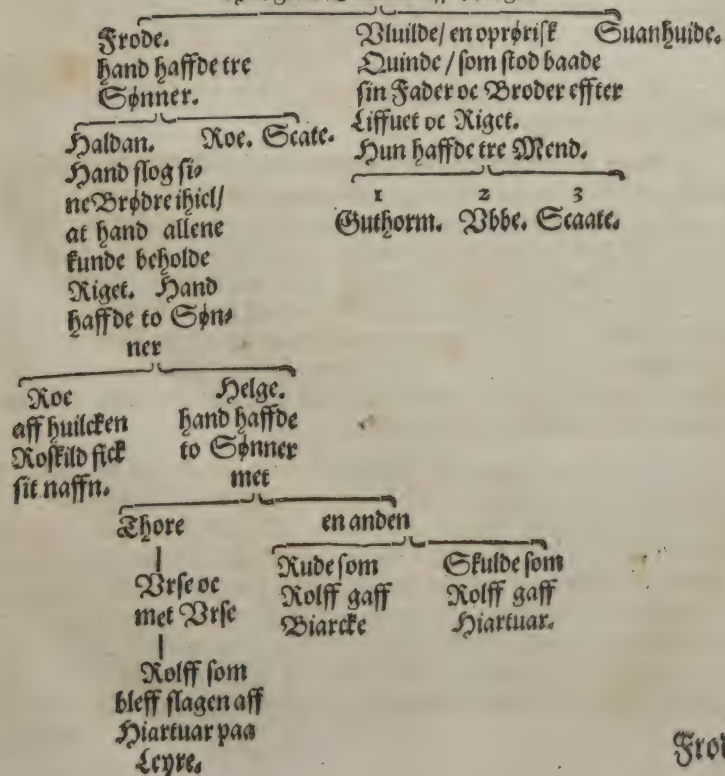 Frode.
hand haffde tre
Sønner.
Vluilde/ en oprørisk
Quinde / som stod baade
sin Fader oc Broder effter
Liffuet oc Riget.
Hun haffde tre Mend.
Suanhuide.
Haldan.
Hand slog si-
ne Brødre ihiel/
at hand allene
kunde beholde
Riget. Hand
haffde to Søn-
ner
Roe. Scate.
1 2 3
Guthorm. Vbbe. Scaate.
Roe
aff huilcken
Roskild fick
sit naffn.
Helge.
hand haffde
to Sønner
met
Thore
en anden
Vrse oc
met Vrse
Rude som
Rolff gaff
Biarcke
Skulde som
Rolff gaff
Hiartuar.
Rolff som
bleff slagen aff
Hiartuar paa
Leyre.